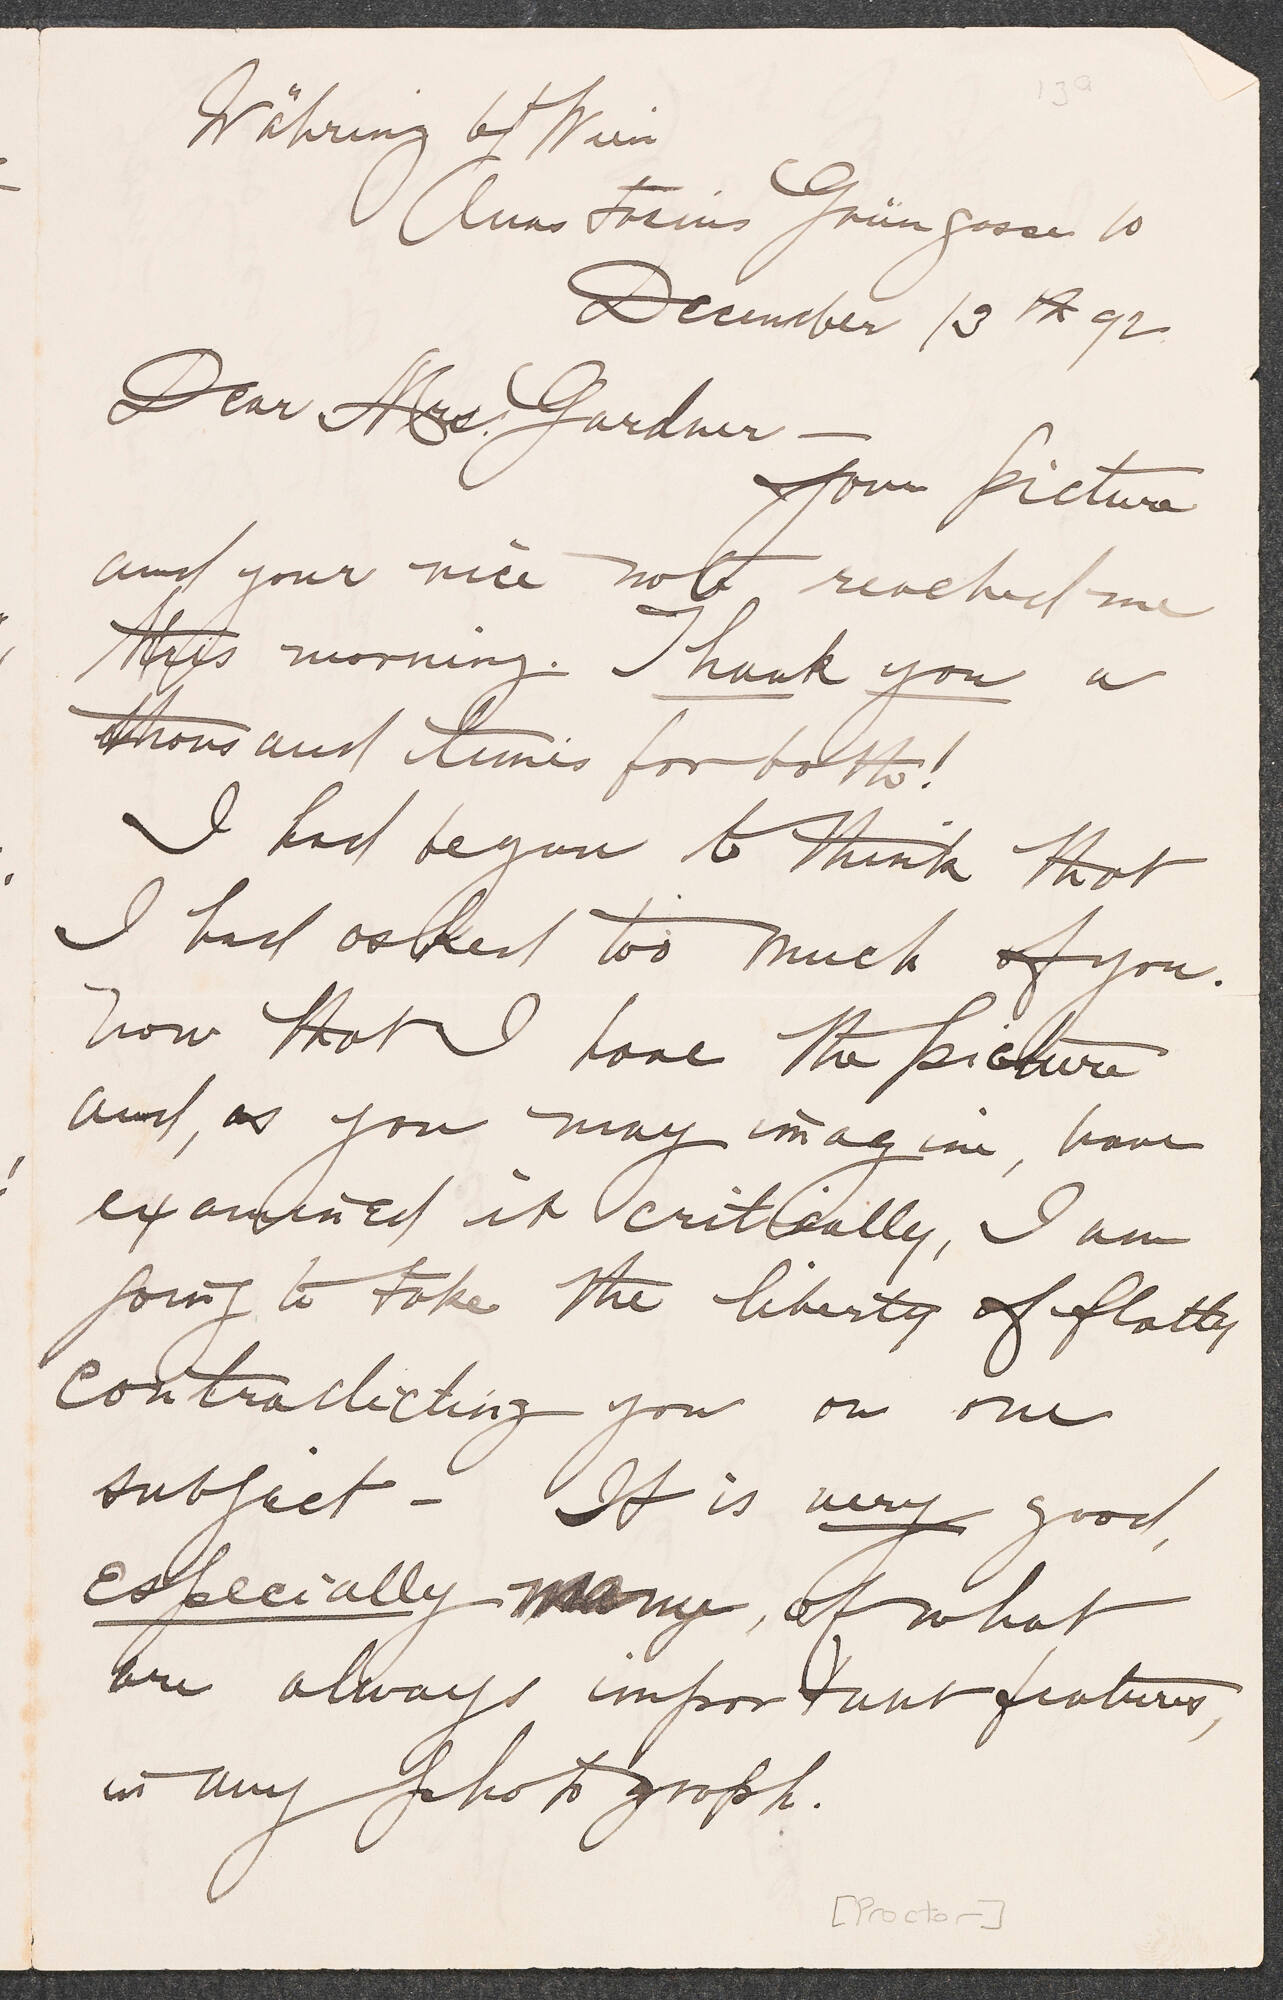 13a
Währing bei Wien
Anastasius Grüngasse 10
December 13th 92
Dear Mrs. Gardner —
Your picture
and your nice note reached me
this morning. Thank you a
thousand times for both!
I had begun to think that
I had asked too much of you.
Now that I have the picture
and, as you may imagine, have
examined it critically, I am
going to take the liberty of flatly
contradicting you on one
subject - It is very good,
especially many, of what
are always important features,
in any photograph.
[Proctor-]